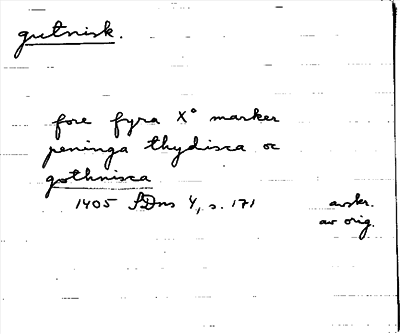 gutnisk.
fore fyra X° marker
peninga thydisca oc
gothnisca
1405 SDns 4, s. 171
avskr.
av orig.